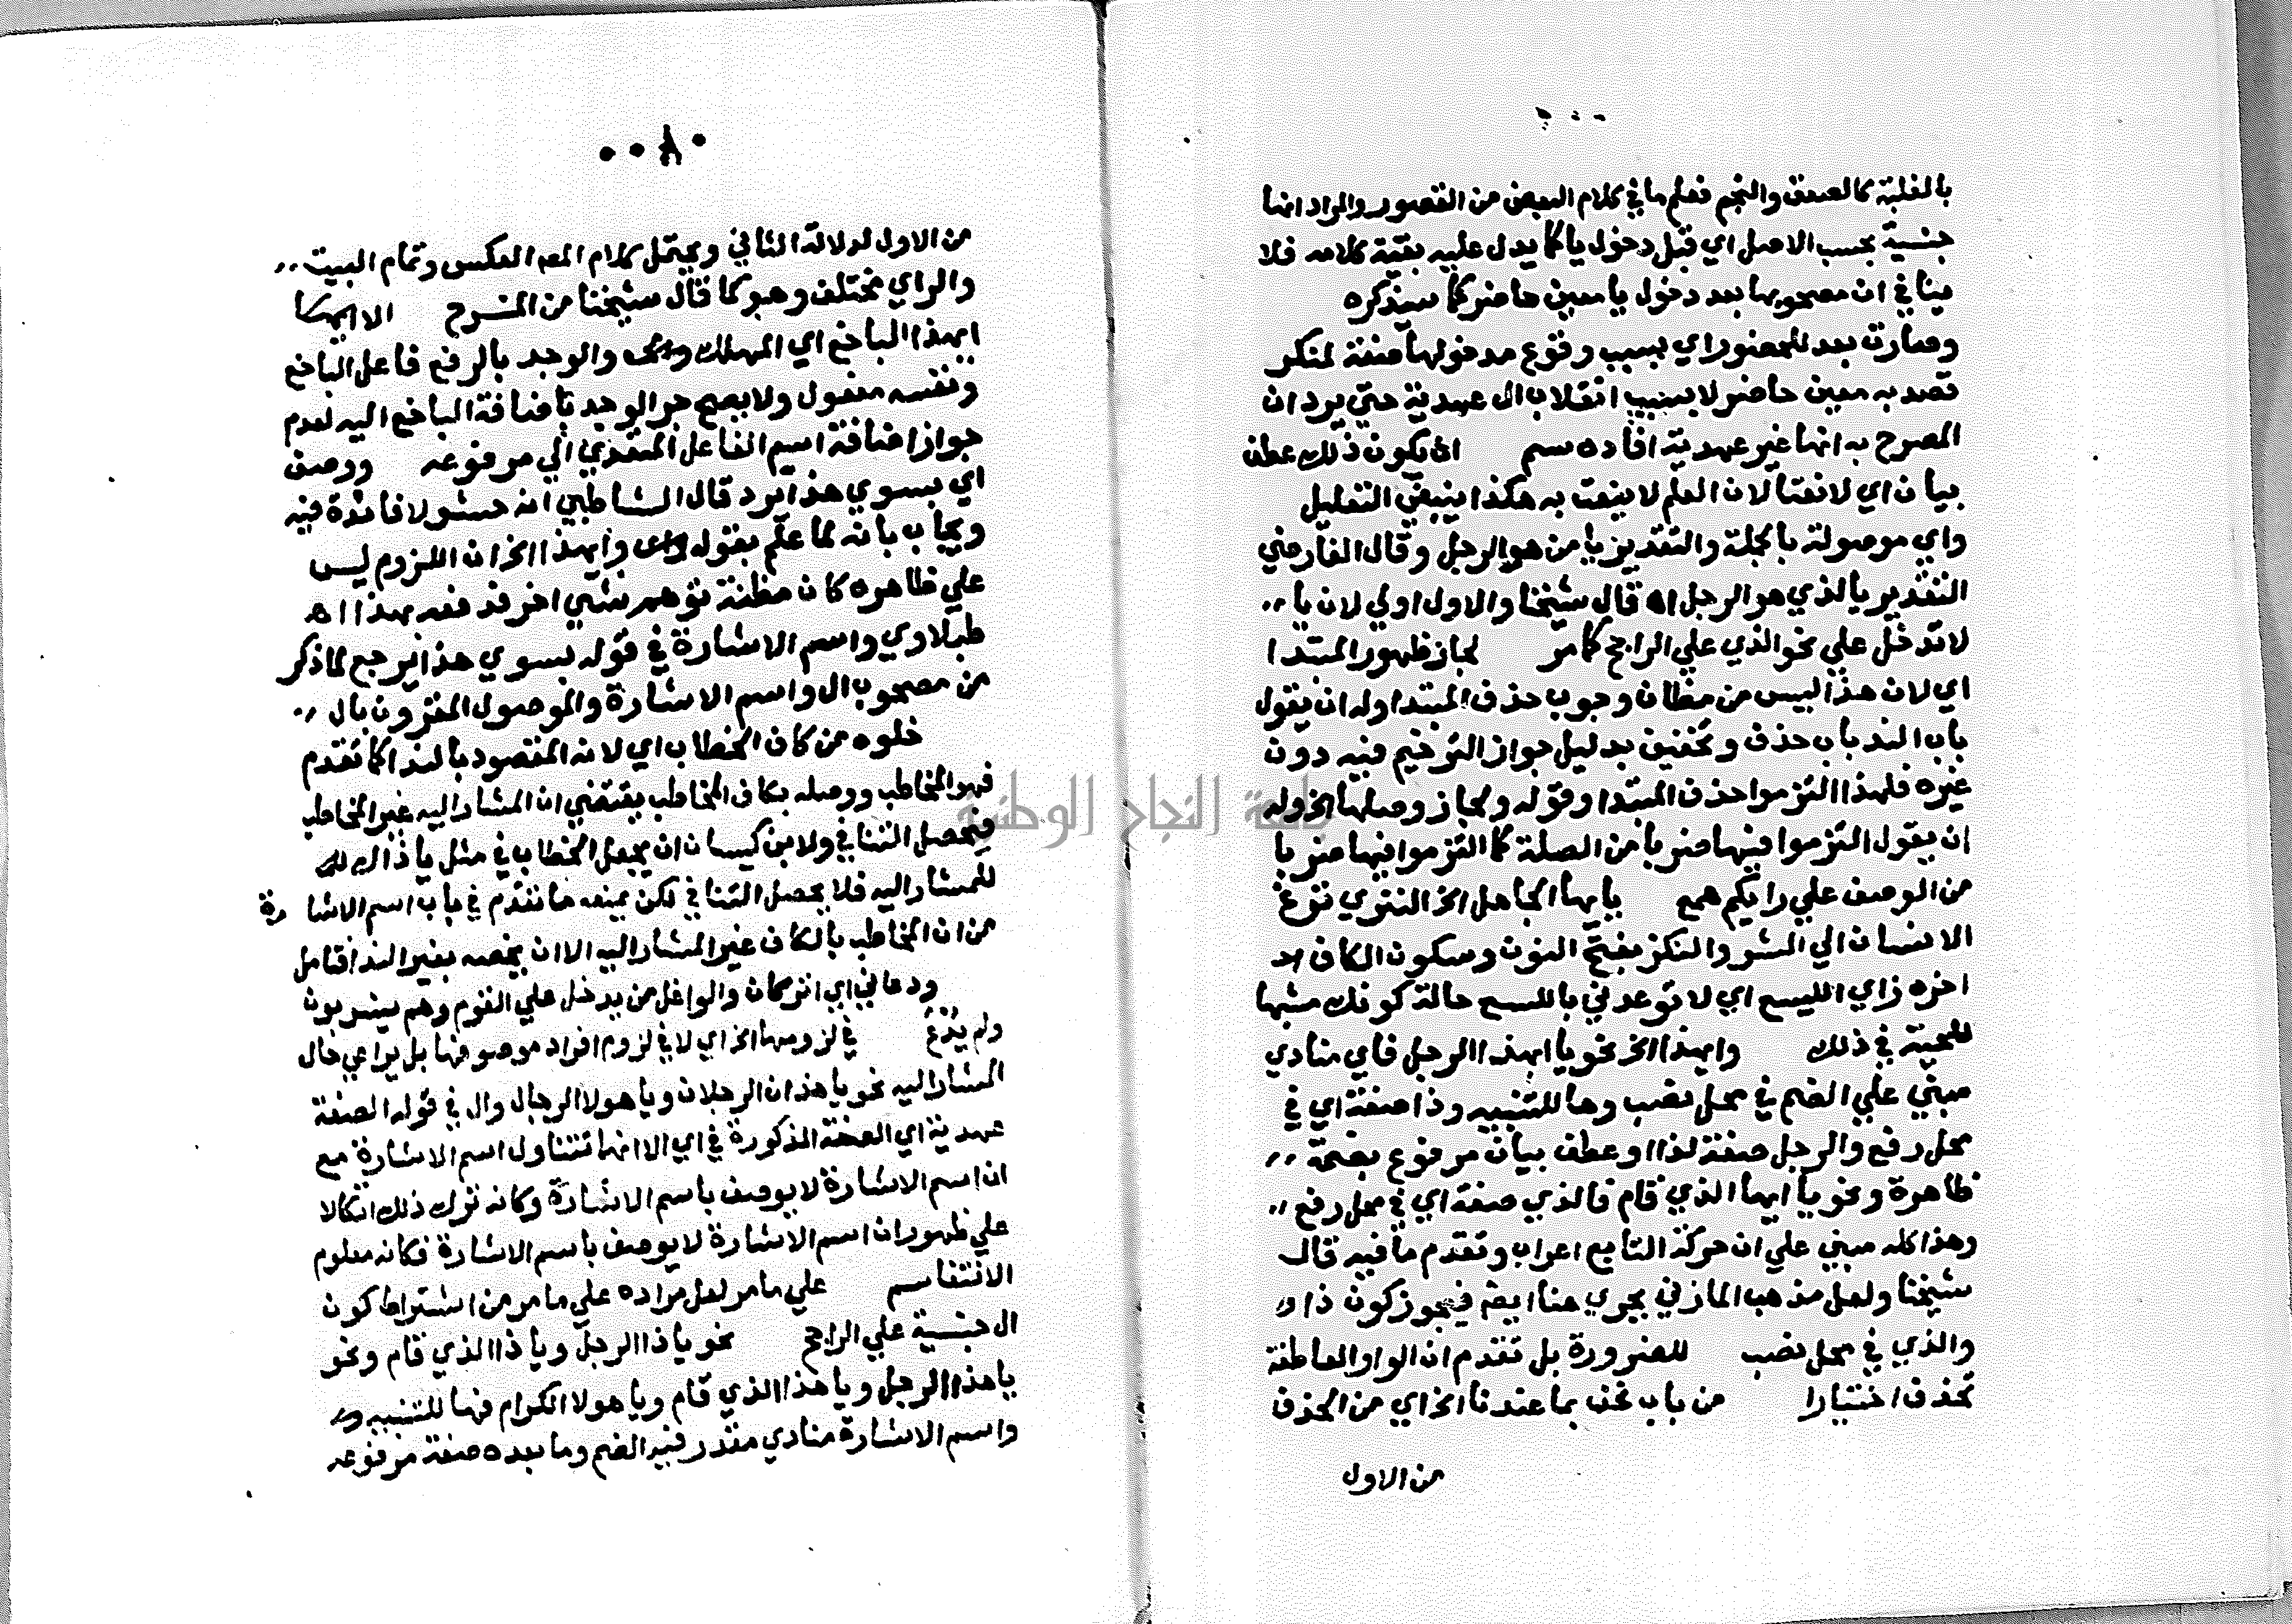 بالغلبة كالصعق والنجم فعلم ما في كلام البعض من القصور والمراد انها
جنسية بحسب الاصل اي قبل دخول يا كما يدل عليه بقية كلامه فلا
ينافي ان مصحوبها بعد دخول يا معين حاضر كما سيذكره
وصارت بعد للحضور اي بسبب وقوع مدخولها صفة لمنكر
قصد به معين حاضر لا بسبب انقلاب ال عهدية حتي يرد ان
المصرح به انها غير عهدية افاده سم ان يكون ذلك عطف
بيان اي لا نعتا لان العلم لا ينعت به هكذا ينبغي التعليل
واي موصولة بالجملة والتقدير يا من هو الرجل وقال الفارضي
التقدير يا لذي هو الرجل اه قال شيخنا والاول اولي لان يا
لا تدخل علي نحو الذي علي الراجح كما مر لجاز ظهور المبتدا
اي لان هذا ليس من مظان وجوب حذف المبتدا وله ان يقول
باب الندا باب حذف وتخفيف بدليل جواز الترخيم فيه دون
غيره فلهذا التزموا حذف المبتدا وقوله ولجاز وصلها الخ وله
ان يقول التزموا فيها ضربا من الصلة كما التزموا فيها ضربا
من الوصف علي رايكم همع يايها الجاهل الخ التنزي نزع
الانسان الي الشر والنكز بفتح النون وسكون الكاف اه
اخره زاي اللسع اي لا توعدني باللسع حالة كونك مشبها
للحية في ذلك وايهذا الخ نحو يا ايهذا الرجل فاي منادي
مبني علي الضم في محل نصب وها للتنبيه وذا صفة اي في
محل رفع والرجل صفة لذا او عطف بيان مرفوع بضمة
ظاهرة ونحو يا ايها الذي قام فالذي صفة اي في محل رفع
وهذا كله مبني علي ان حركة التابع اعراب وتقدم ما فيه قال
شيخنا ولعل مذهب المازني يجري هنا ايضا فيجوز كون ذا
والذي في محل نصب للضرورة بل تقدم ان الواو العاطفة
تحذف اختيارا من باب نحن بما عندنا الخ اي من الحذف
من الاول
من الاول لدلالة الثاني ويحتمل كلام المص العكس وتمام البيت
والراي مختلف وهو كما قال شيخنا من المنسرح الا ايهذا
ايهذا الباخع اي المهلك والوجد بالرفع فاعل الباخع
ونفسه مفعول ولا يصح جر الوجد باضافة الباخع اليه لعدم
جواز اضافة اسم الفاعل المتعدي الي مرفوعه ووصف
اي بسوي هذا يرد قال الشاطبي انه حشو لا فائدة فيه
ويجاب بانه لما علم بقوله وايهذا الخ ان اللزوم ليس
علي ظاهره كان مظنة توهم شي اخر فدفعه بهذا اه
طبلاوي واسم الاشارة في قوله بسوي هذا يرجع لما ذكر
من مصحوب ال واسم الاشارة والموصول المقرون بال
خلوه من كاف الخطاب اي لانه المقصود بالندا كما تقدم
فهو المخاطب ووصله بكاف المخاطب يقتضي ان المشار اليه غير المخاطب
فيحصل التنافي ولابن كيسان ان يجعل الخطاب في مثل يا ذلك
للمشار اليه فلا يحصل التنافي لكن يمنعه ما تقدم في باب اسم الاشارة
من ان المخاطب بالكاف غير المشار اليه الا ان يخصه بغير الندا فتامل
ودعاني اي اتركان والواغل من يدخل علي القوم وهم يشربون
ولم يُدْعَ في لزومها الخ اي لا في لزوم افراد موصوفها بل يراعي حال
المشار اليه نحو يا هذان الرجلان ويا هولا الرجال وال في قوله الصفة
عهدية اي الصفة المذكورة في اي الا انها تتناول اسم الاشارة مع
ان اسم الاشارة لا يوصف باسم الاشارة وكانه ترك ذلك اتكالا
علي ظهور ان اسم الاشارة لا يوصف باسم الاشارة فكانه معلوم
الانتفا سم علي ما مر لعل مراده علي ما مر من اشتراط كون
ال جنسية علي الراجح نحو يا ذا الرجل ويا ذا الذي قام ونحو
يا هذا الرجل ويا هذا الذي قام ويا هولا الكرام فها للتنبيه
واسم الاشارة منادي مقدر فيه الضم وما بعده صفة مرفوعه
جامعة النجاح الوطنية